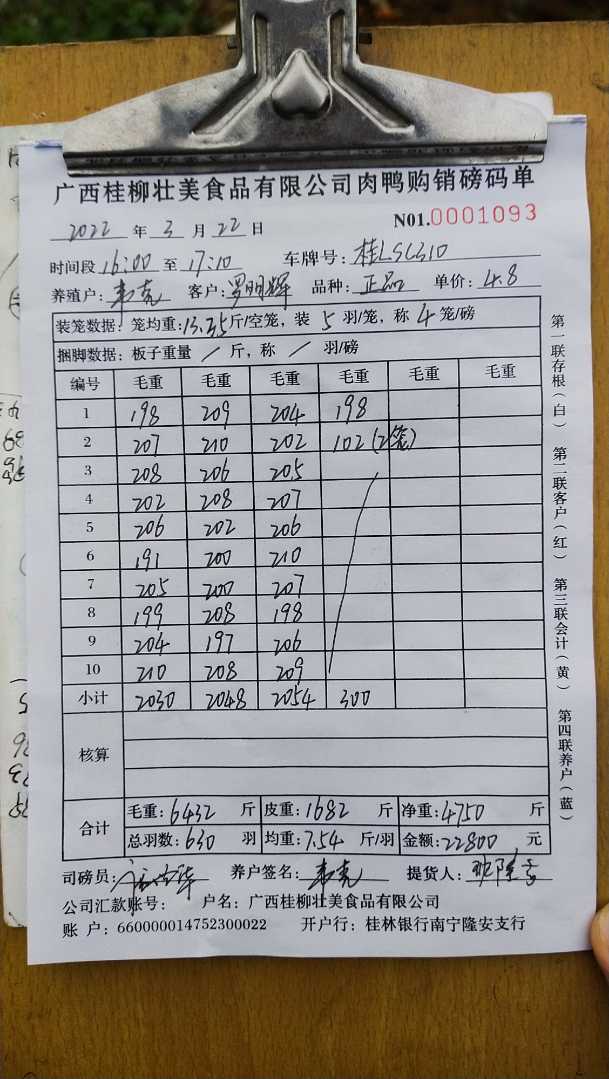 广西桂柳壮美食品有限公司肉鸭购销磅码单
2022 年 3 月 22 日 N01.0001093
时间段 16:00 至 17:10 车牌号: 桂LSC310
养殖户: 韦克 客户: 罗明辉 品种: 正品 单价: 4.8
装笼数据: 笼均重: 13.35 斤/空笼, 装 5 羽/笼, 称 4 笼/磅
捆脚数据: 板子重量 / 斤, 称 / 羽/磅
编号 毛重 毛重 毛重 毛重 毛重 毛重
1 198 209 204 198
2 207 210 202 102 (2笼)
3 208 206 205
4 202 208 207
5 206 202 206
6 191 200 210
7 205 200 207
8 199 208 198
9 204 197 206
10 210 208 209
小计 2030 2048 2054 300
核算
合计 毛重: 6432 斤 皮重: 1682 斤 净重: 4750 斤
总羽数: 630 羽 均重: 7.54 斤/羽 金额: 22800 元
司磅员: 养户签名: 韦克 提货人:
公司汇款账号: 户名: 广西桂柳壮美食品有限公司
账 户: 660000014752300022 开户行: 桂林银行南宁隆安支行
第一联存根(白) 第二联客户(红) 第三联会计(黄) 第四联养户(蓝)